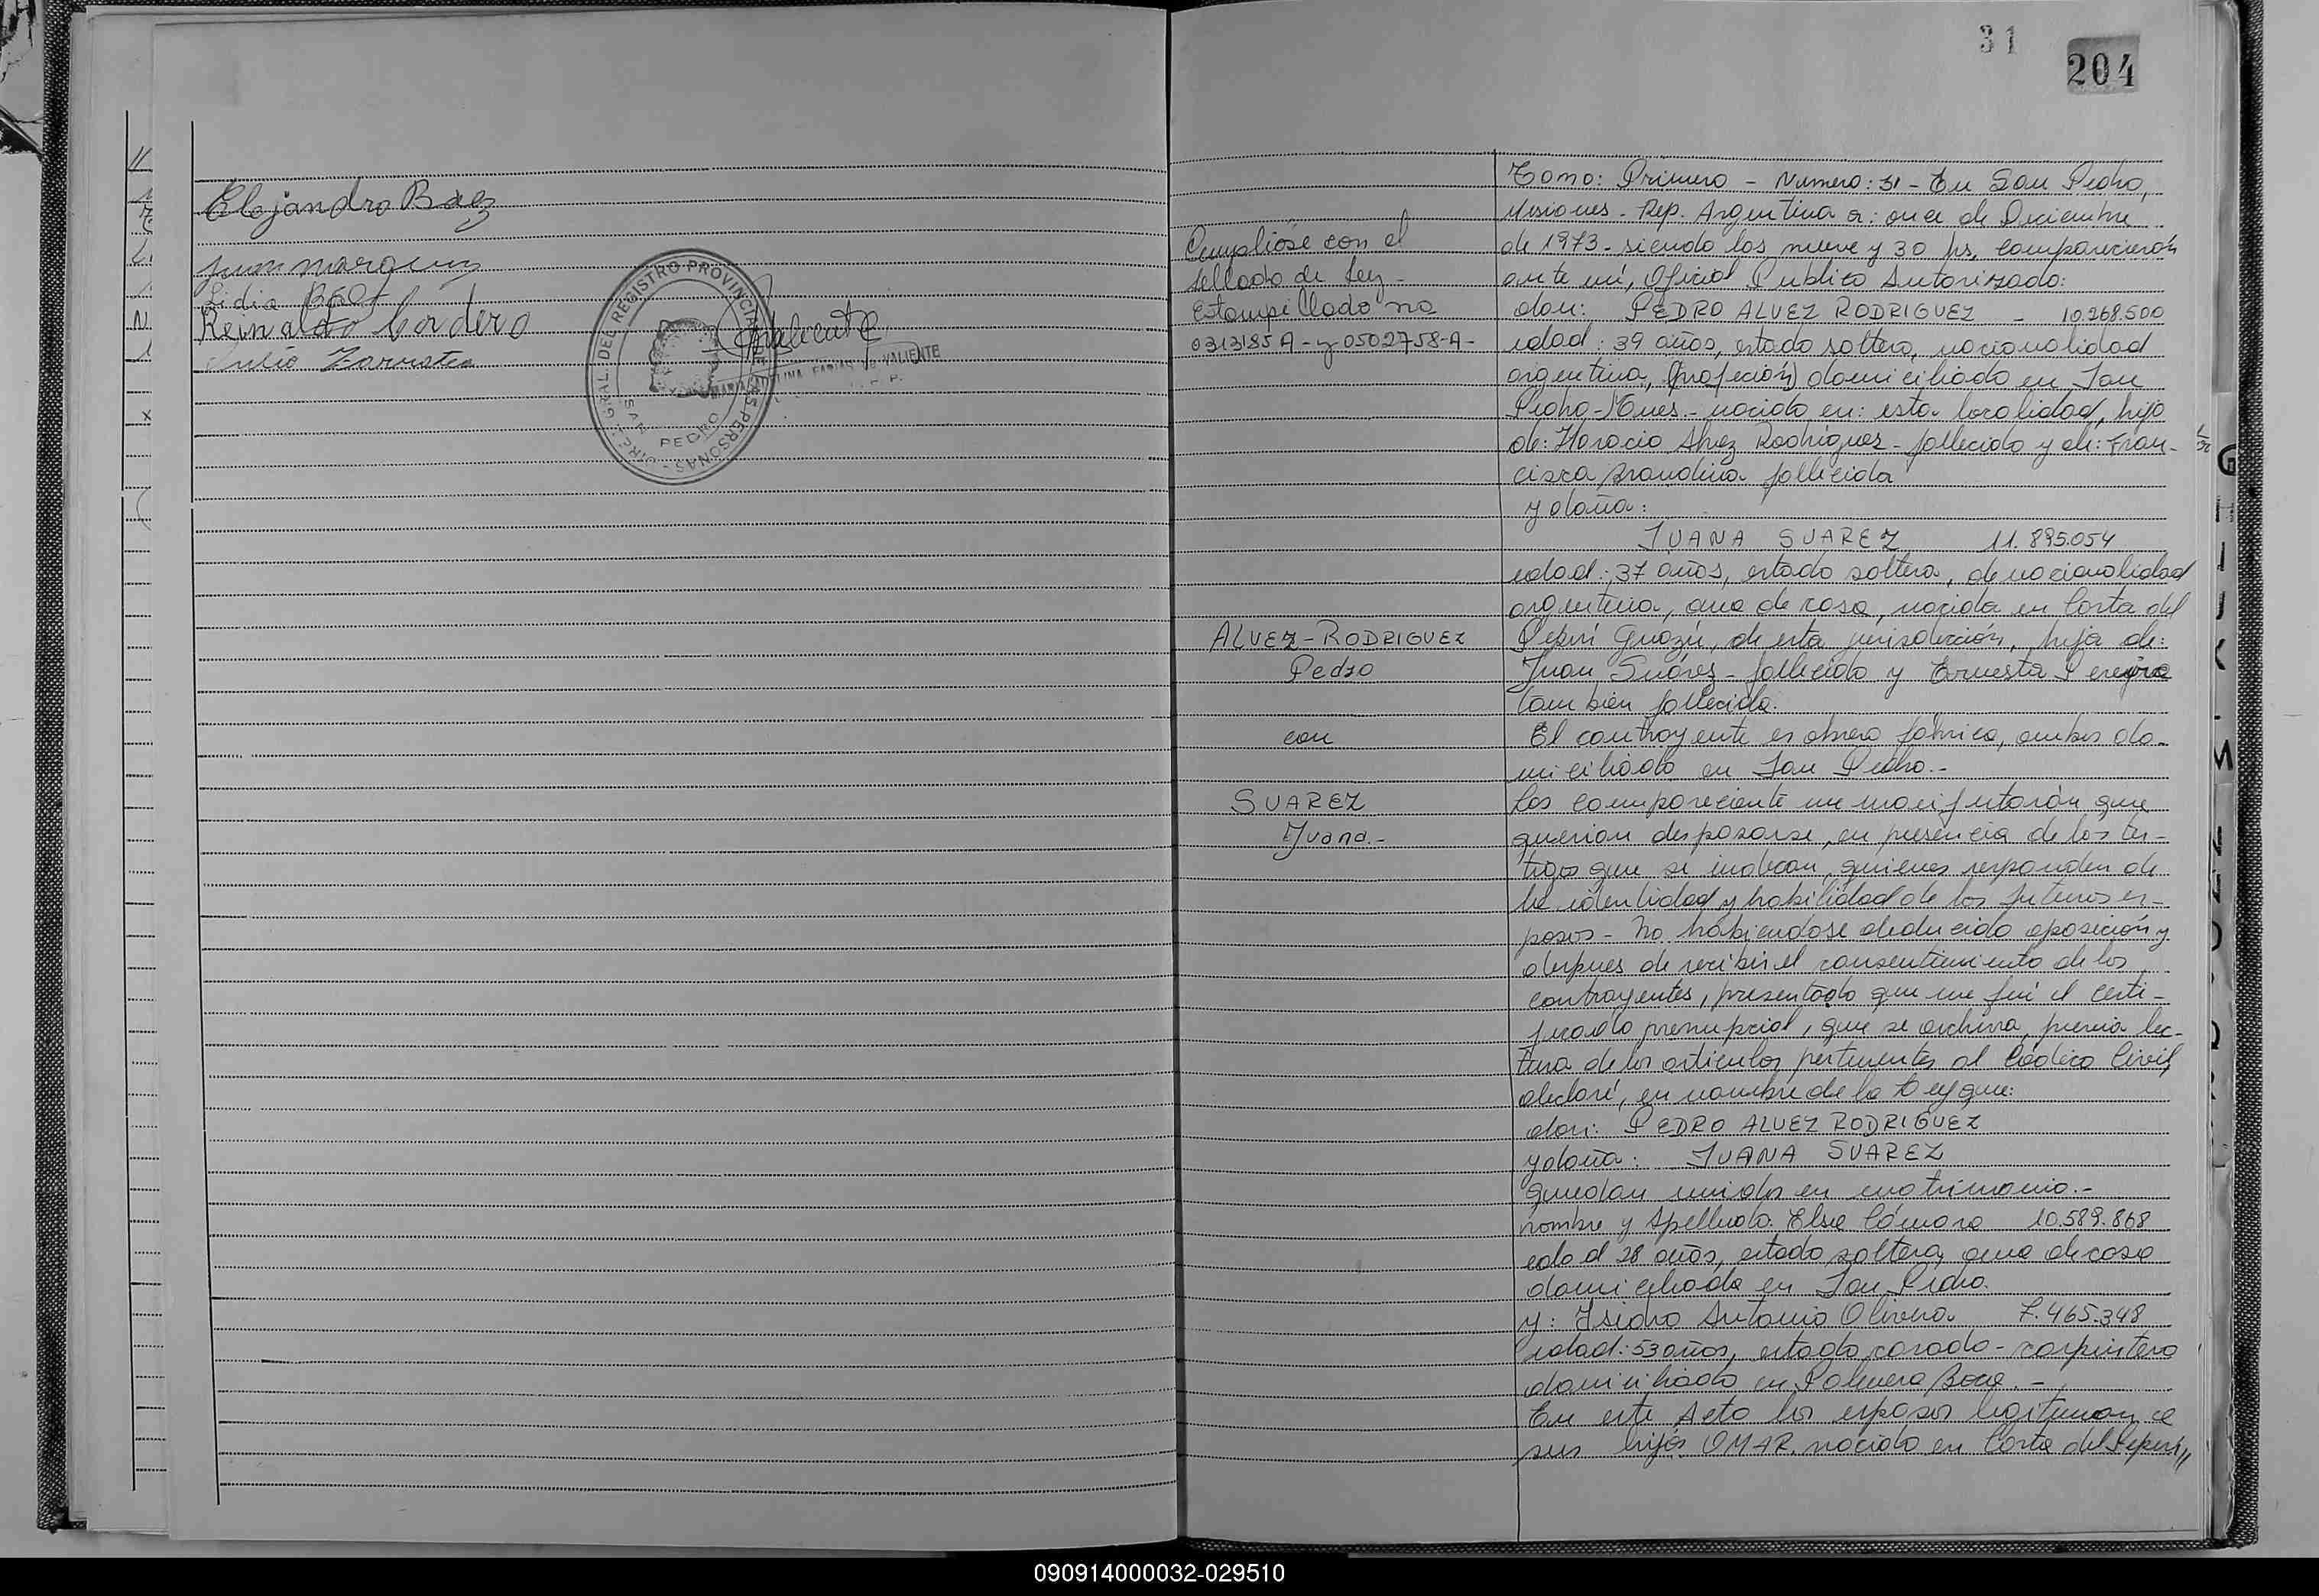 Alejandro Baez
Juan Marquez
Lidia Báez
Reinaldo Cordero
Julio Zarratea
DIR. GRAL. DEL REGISTRO PROVINCIAL DE LAS PERSONAS
SAN PEDRO
FARIAS DE VALIENTE
31
204
Cumpliose con el
sellado de Ley -
Estampillado no
0313185 A - y 0502758-A -
ALVEZ - RODRIGUEZ
Pedro
con
SUAREZ
Juana.-
Tomo: Primero - Numero: 31 - En San Pedro,
Misiones - Rep. Argentina a: once de Diciembre
de 1973 - siendo las nueve y 30 hs, comparecieron
ante mí, Oficial Publico Autorizado:
don: PEDRO ALVEZ RODRIGUEZ - 10.268.500
edad: 39 años, estado soltero, nacionalidad
argentina, (profeción) domiciliado en San
Pedro - Mnes.- nacido en: esta localidad, hijo
de: Horacio Alvez Rodriguez - fallecido y de: Fran-
cisca Brandina fallecida
y doña:
JUANA SUAREZ 11.895.054
edad: 37 años, estado soltera, de nacionalidad
argentina, ama de casa, nacida en Costa del
Pepirí Guazú, de esta jurisdicción, hija de:
Juan Suárez - fallecido y Ernesta Pereyra
tambien fallecida.
El contrayente es obrero fabrica, ambos do-
miciliado en San Pedro.-
Los compareciente me manifestarón que
querian desposarse, en presencia de los tes-
tigos que se indican, quienes responden de
la identidad y habilidad de los futuros es-
posos - No habiendose deducido oposición y
despues de recibir el consentimiento de los
contrayentes, presentado que me fué el certi-
ficado prenupcial, que se archiva, previa lec-
tura de los articulos pertinentes al Códico Civil,
declaré, en nombre de la Ley que:
don: PEDRO ALVEZ RODRIGUEZ
y doña: JUANA SUAREZ
quedan unidos en matrimonio.-
nombre y Apellido: Elsa Cámara 10.589.868
edad 28 años, estado soltera, ama de casa
domiciliada en San Pedro.
y: Isidro Antonio Olivera 7.465.348
edad: 53 años, estado casado - carpintero
domiciliado en Palmera Boca.-
En este Acto los esposos legitiman a
sus hijos OMAR, nacido en Costa del Pepirí //
G
H
I
J
K
M
090914000032-029510